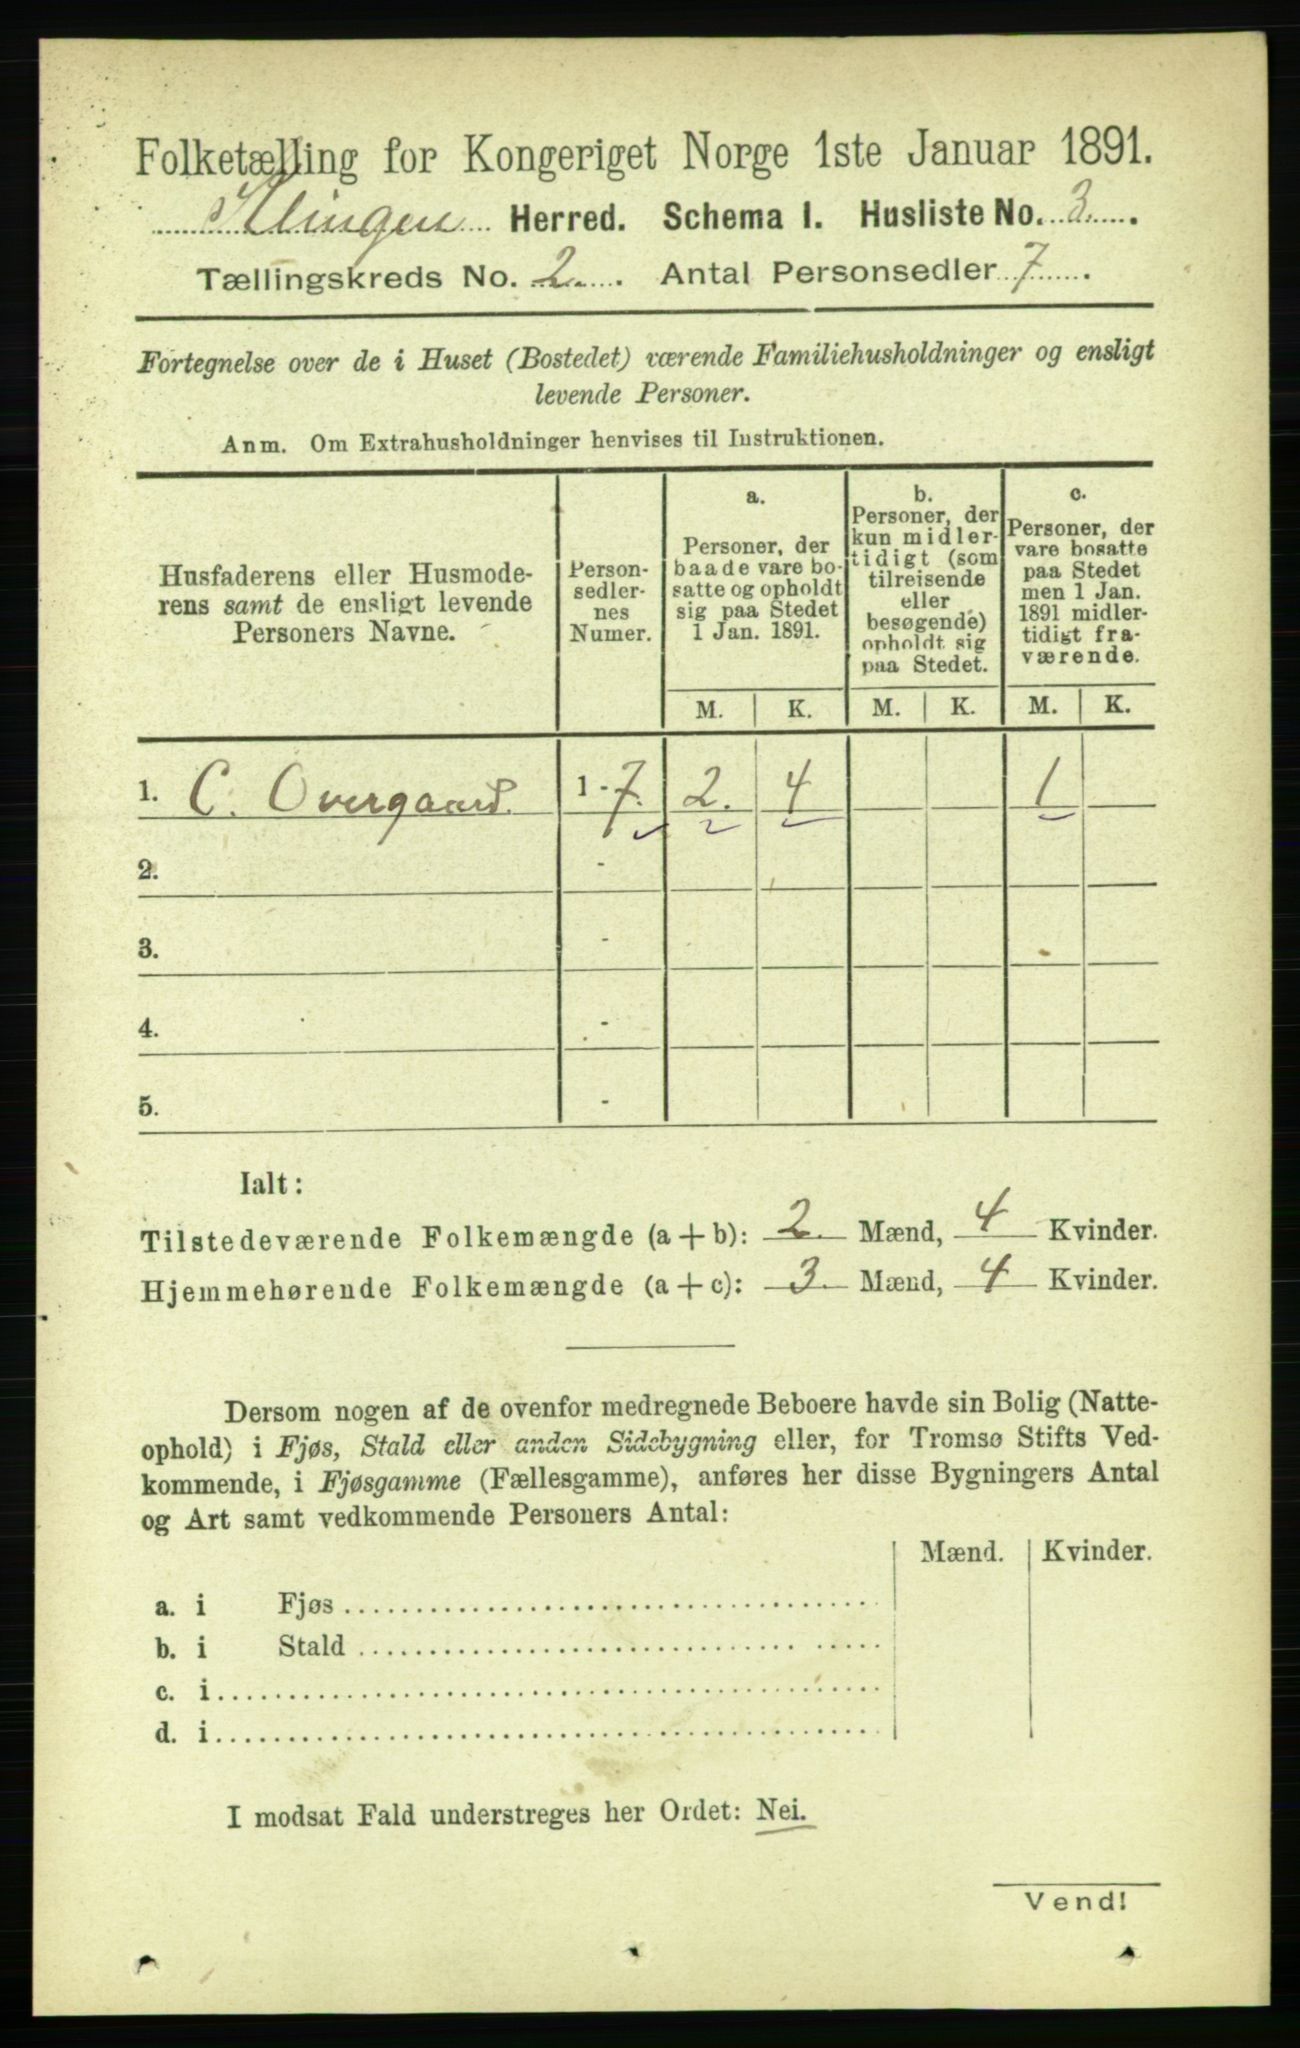 Folketælling for Kongeriget Norge 1ste Januar 1891.
Klingen Herred. Schema 1. Husliste No. 3.
Tællingskreds No. 2. Antal Personsedler 7.
Fortegnelse over de i Huset (Bostedet) værende Familiehusholdninger og ensligt
levende Personer.
Anm. Om Extrahusholdninger henvises til Instruktionen.
Husfaderens eller Husmode-
rens samt de ensligt levende
Personers Navne.
Person-
sedler-
nes
Numer.
a.
Personer, der
baade vare bo-
satte og opholdt
sig paa Stedet
1 Jan. 1891.
b.
Personer, der
kun midler-
tidigt (som
tilreisende
eller
besøgende)
opholdt sig
paa Stedet.
c.
Personer, der
vare bosatte
paa Stedet
men 1 Jan.
1891 midler-
tidigt fra-
værende.
M. K. M. K. M. K.
1. C. Overgaard 1-7. 2. 4 1
2. -
3. -
4. -
5. -
Ialt:
Tilstedeværende Folkemængde (a+b): 2. Mænd, 4 Kvinder.
Hjemmehørende Folkemængde (a+c): 3. Mænd, 4 Kvinder.
Dersom nogen af de ovenfor medregnede Beboere havde sin Bolig (Natte-
ophold) i Fjøs, Stald eller anden Sidebygning eller, for Tromsø Stifts Ved-
kommende, i Fjøsgamme (Fællesgamme), anføres her disse Bygningers Antal
og Art samt vedkommende Personers Antal:
Mænd. Kvinder.
a. i Fjøs
b. i Stald
c. i
d. i
I modsat Fald understreges her Ordet: Nei.
Vend!